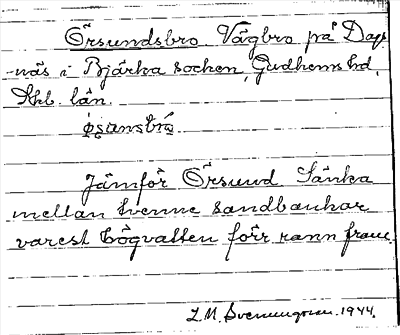 Örsundsbro Vägbro på Dags
-näs i Bjärka socken, Gudhems hd.
Skb. län.
Jämför Örsund Sänka
mellan tvenne sandbankar
varest högvatten förr rann fram
L.M. Svenungsson. 1944.